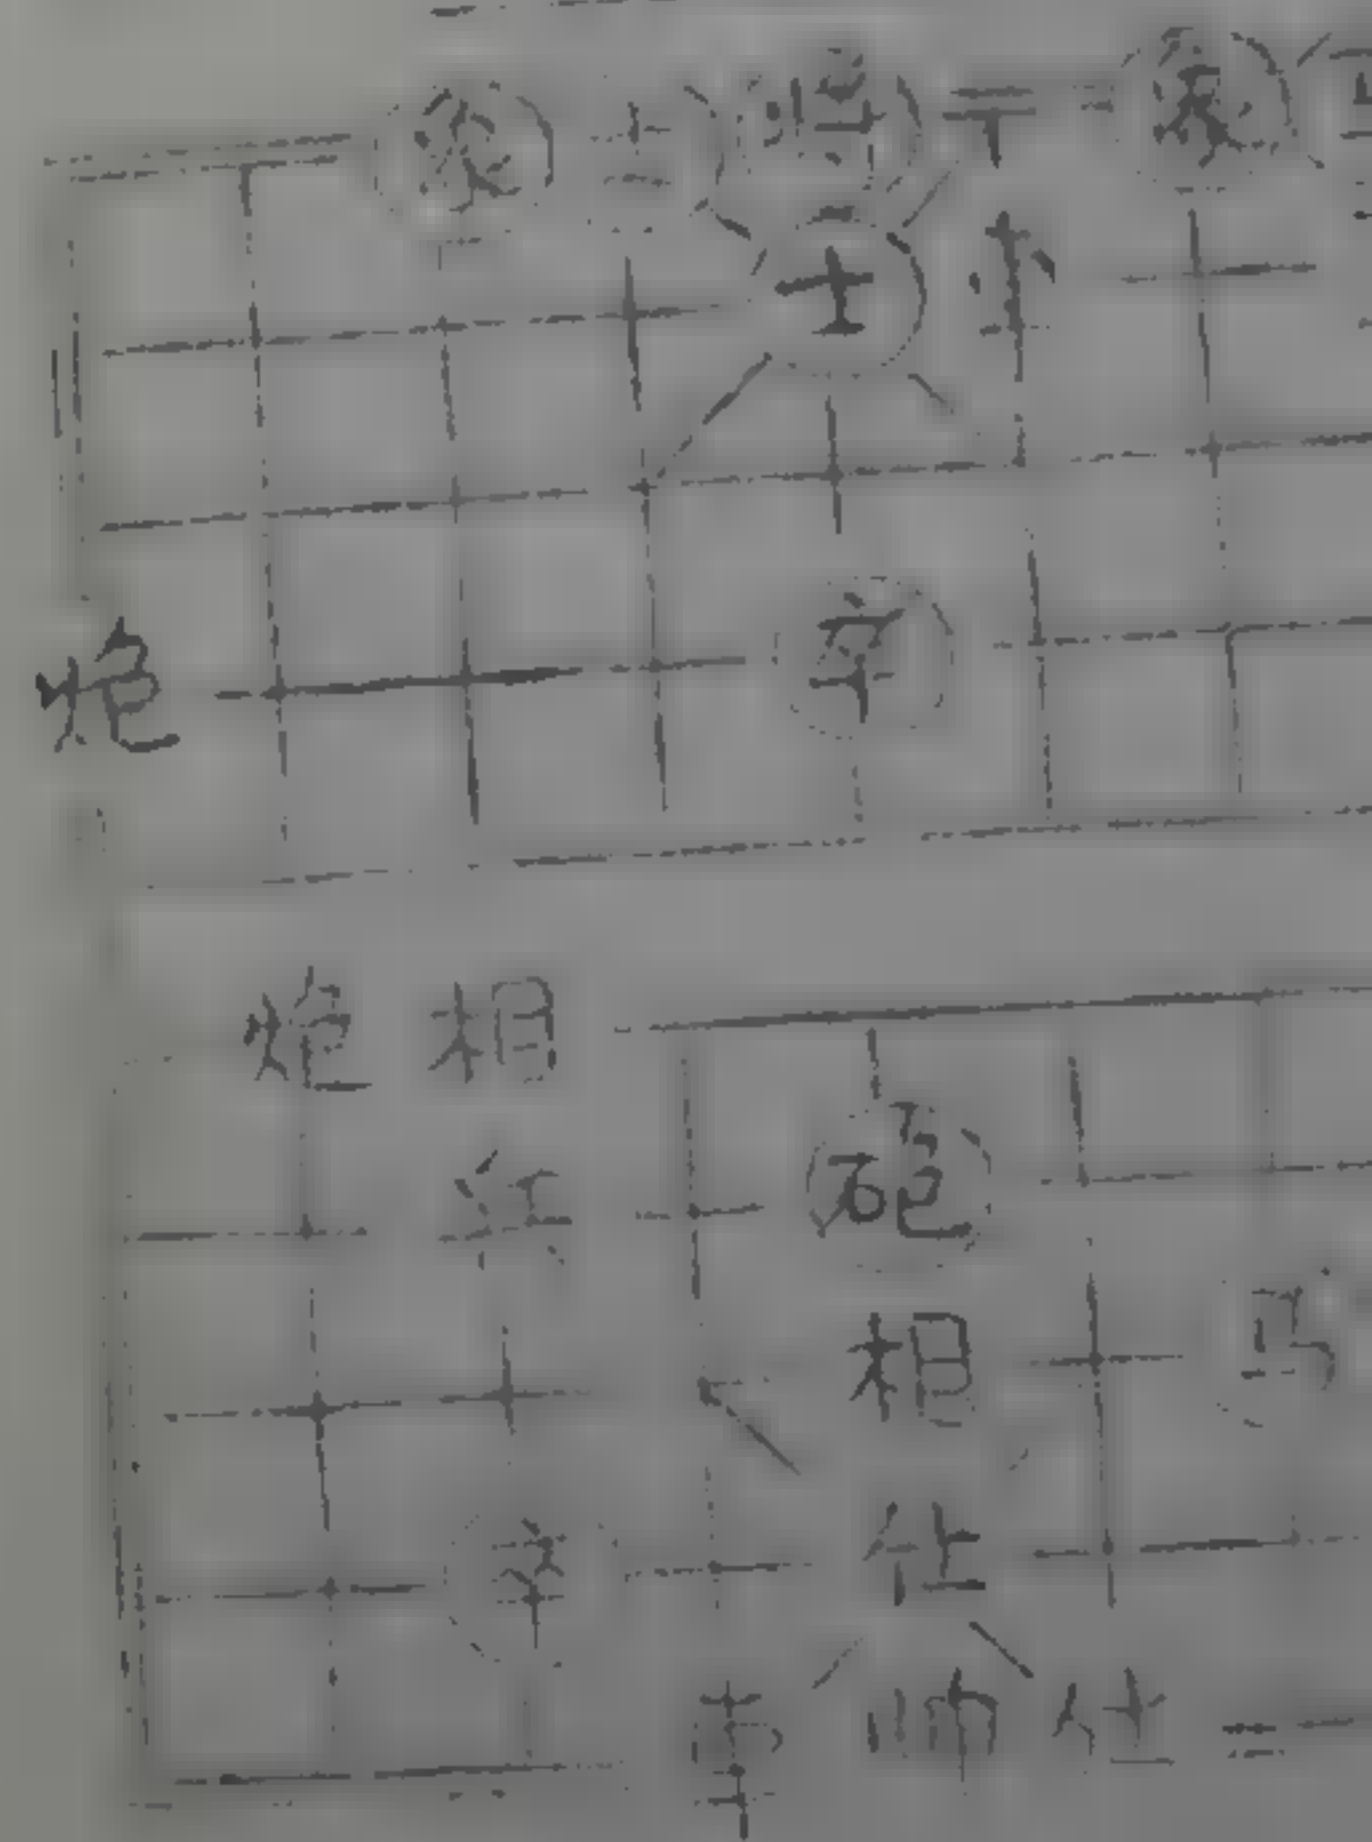 象 士 将 象
士
炮 卒
炮 相
兵 砲
相 马
卒 仕
車 帅 仕